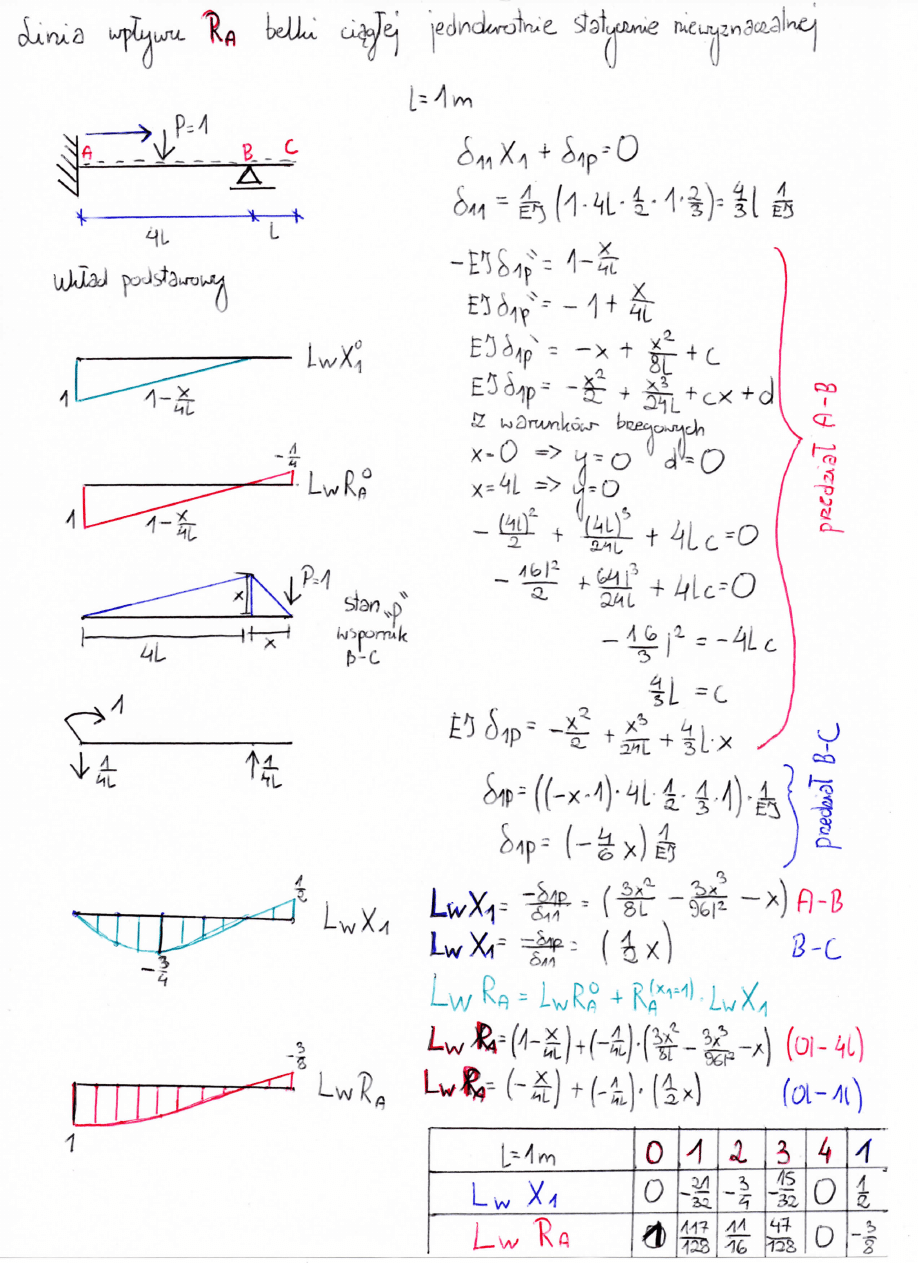 Linia wpływu RA belki ciągłej jednokrotnie statycznie niewyznaczalnej
L=1m
P=1
A B C
4L L
układ podstawowy
1 1-x/4L LwX₁⁰
-1/4
1 1-x/4L LwRA⁰
P=1
x
4L x
stan „p"
wspornik
B-C
1
1/4L 1/4L
1/2
-3/4
LwX₁
-3/8
1
LwRA
δ11 X1 + δ1p = 0
δ11 = 1/EJ (1·4L·1/2·1·2/3) = 4/3 L 1/EJ
-EJδ1p" = 1-x/4L
EJδ1p" = -1+x/4L
EJδ1p' = -x + x²/8L + c
EJδ1p = -x²/2 + x³/24L + cx + d
z warunków brzegowych
x=0 => y=0 d=0
x=4L => y=0
-(4L)²/2 + (4L)³/24L + 4Lc=0
-16l²/2 + 64l³/24L + 4Lc=0
-16/3 l² = -4Lc
4/3 L = c
EJδ1p = -x²/2 + x³/24L + 4/3 L·x
przedział A-B
δ1p = ((-x·1)·4L·1/2·1/3·1)·1/EJ
δ1p = (-4/6 x) 1/EJ
przedział B-C
LwX1 = -δ1p/δ11 = (3x²/8L - 3x³/96l² - x) A-B
LwX1 = -δ1p/δ11 = (1/2 x) B-C
LwRA = LwRA⁰ + RA^(x1=1) · LwX1
LwRA = (1-x/4L) + (-1/4L)·(3x²/8L - 3x³/96l² - x) (0l-4L)
LwRA = (-x/4L) + (-1/4L)·(1/2 x) (0l-1l)
L=1m 0 1 2 3 4 1
Lw X1 0 -21/32 -3/4 -15/32 0 1/2
Lw RA 1 117/128 11/16 47/128 0 -3/8